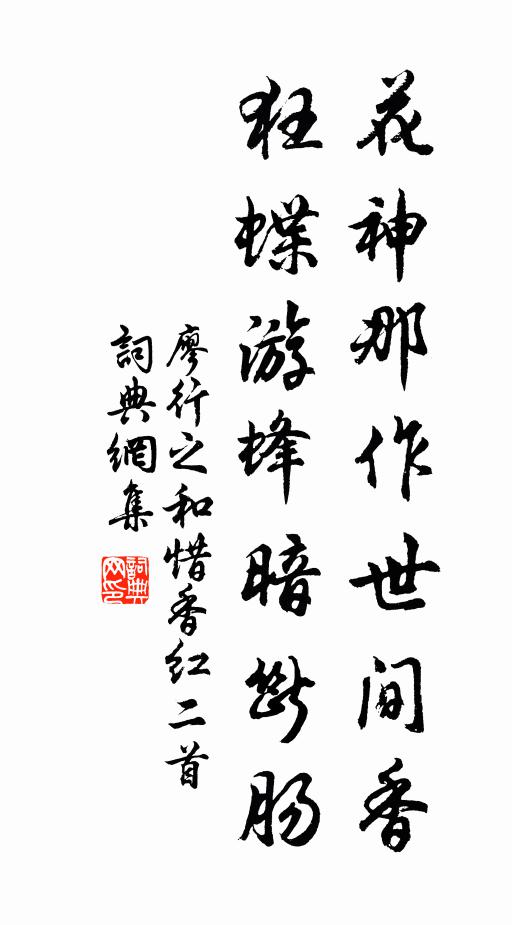 花神那作世间香
狂蝶游蜂暗断肠
廖行之和惜香红二首
詞典網集
詞典网印